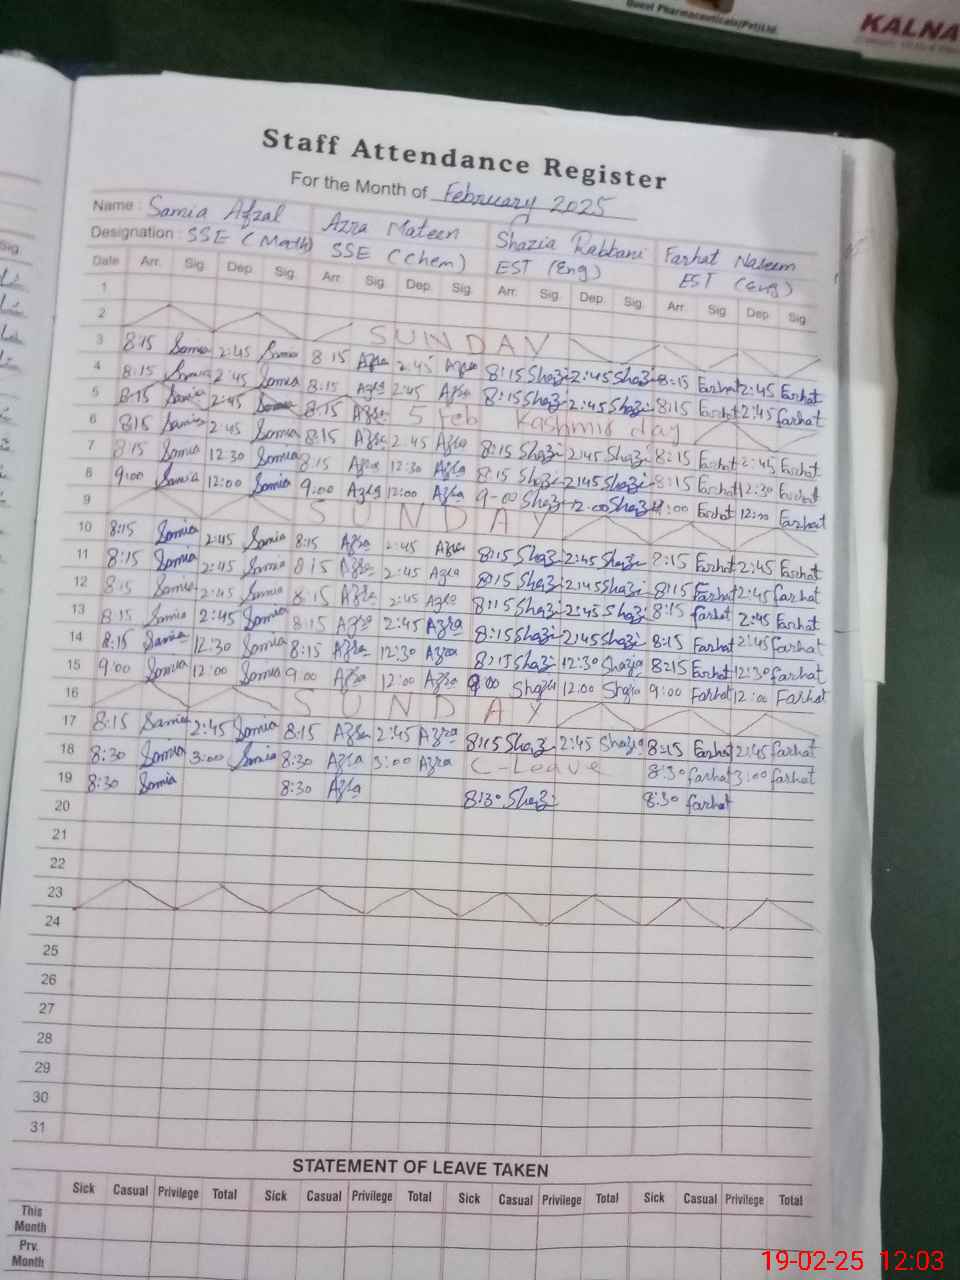 Quest Pharmaceuticals(Pvt)Ltd.
KALNA
Staff Attendance Register
For the Month of February 2025
Name : Samia Afzal Azra Mateen Shazia Rabbani Farhat Naseem
Designation : SSE (Math) SSE (Chem) EST (Eng) EST (Eng)
Date Arr. Sig. Dep. Sig. Arr. Sig. Dep. Sig. Arr. Sig. Dep. Sig. Arr. Sig. Dep. Sig.
1
2 SUNDAY
3 8:15 Samia 2:45 Samia 8:15 Azra 2:45 Azra 8:15 Shazi 2:45 Shazi 8:15 Farhat 2:45 Farhat
4 8:15 Samia 2:45 Samia 8:15 Azra 2:45 Azra 8:15 Shazi 2:45 Shazi 8:15 Farhat 2:45 Farhat
5 8:15 Samia 2:45 Samia 8:15 Azra 5 Feb Kashmir day
6 8:15 Samia 2:45 Samia 8:15 Azra 2:45 Azra 8:15 Shazi 2:45 Shazi 8:15 Farhat 2:45 Farhat
7 8:15 Samia 12:30 Samia 8:15 Azra 12:30 Azra 8:15 Shazi 2:45 Shazi 8:15 Farhat 12:30 Farhat
8 9:00 Samia 12:00 Samia 9:00 Azra 12:00 Azra 9-00 Shazi 12:00 Shazi 9:00 Farhat 12:00 Farhat
9 SUNDAY
10 8:15 Samia 2:45 Samia 8:15 Azra 2:45 Azra 8:15 Shazi 2:45 Shazi 8:15 Farhat 2:45 Farhat
11 8:15 Samia 2:45 Samia 8:15 Azra 2:45 Azra 8:15 Shazi 2:45 Shazi 8:15 Farhat 2:45 Farhat
12 8:15 Samia 2:45 Samia 8:15 Azra 2:45 Azra 8:15 Shazi 2:45 Shazi 8:15 Farhat 2:45 Farhat
13 8:15 Samia 2:45 Samia 8:15 Azra 2:45 Azra 8:15 Shazi 2:45 Shazi 8:15 Farhat 2:45 Farhat
14 8:15 Samia 12:30 Samia 8:15 Azra 12:30 Azra 8:15 Shazi 12:30 Shazia 8:15 Farhat 12:30 Farhat
15 9:00 Samia 12:00 Samia 9:00 Azra 12:00 Azra 9:00 Shazi 12:00 Shazia 9:00 Farhat 12:00 Farhat
16 SUNDAY
17 8:15 Samia 2:45 Samia 8:15 Azra 2:45 Azra 8:15 Shazi 2:45 Shazia 8:15 Farhat 2:45 Farhat
18 8:30 Samia 3:00 Samia 8:30 Azra 3:00 Azra C-Leave 8:30 Farhat 3:00 Farhat
19 8:30 Samia 8:30 Azra 8:30 Shazi 8:30 Farhat
20
21
22
23
24
25
26
27
28
29
30
31
STATEMENT OF LEAVE TAKEN
Sick Casual Privilege Total Sick Casual Privilege Total Sick Casual Privilege Total Sick Casual Privilege Total
This
Month
Prv.
Month
19-02-25 12:03